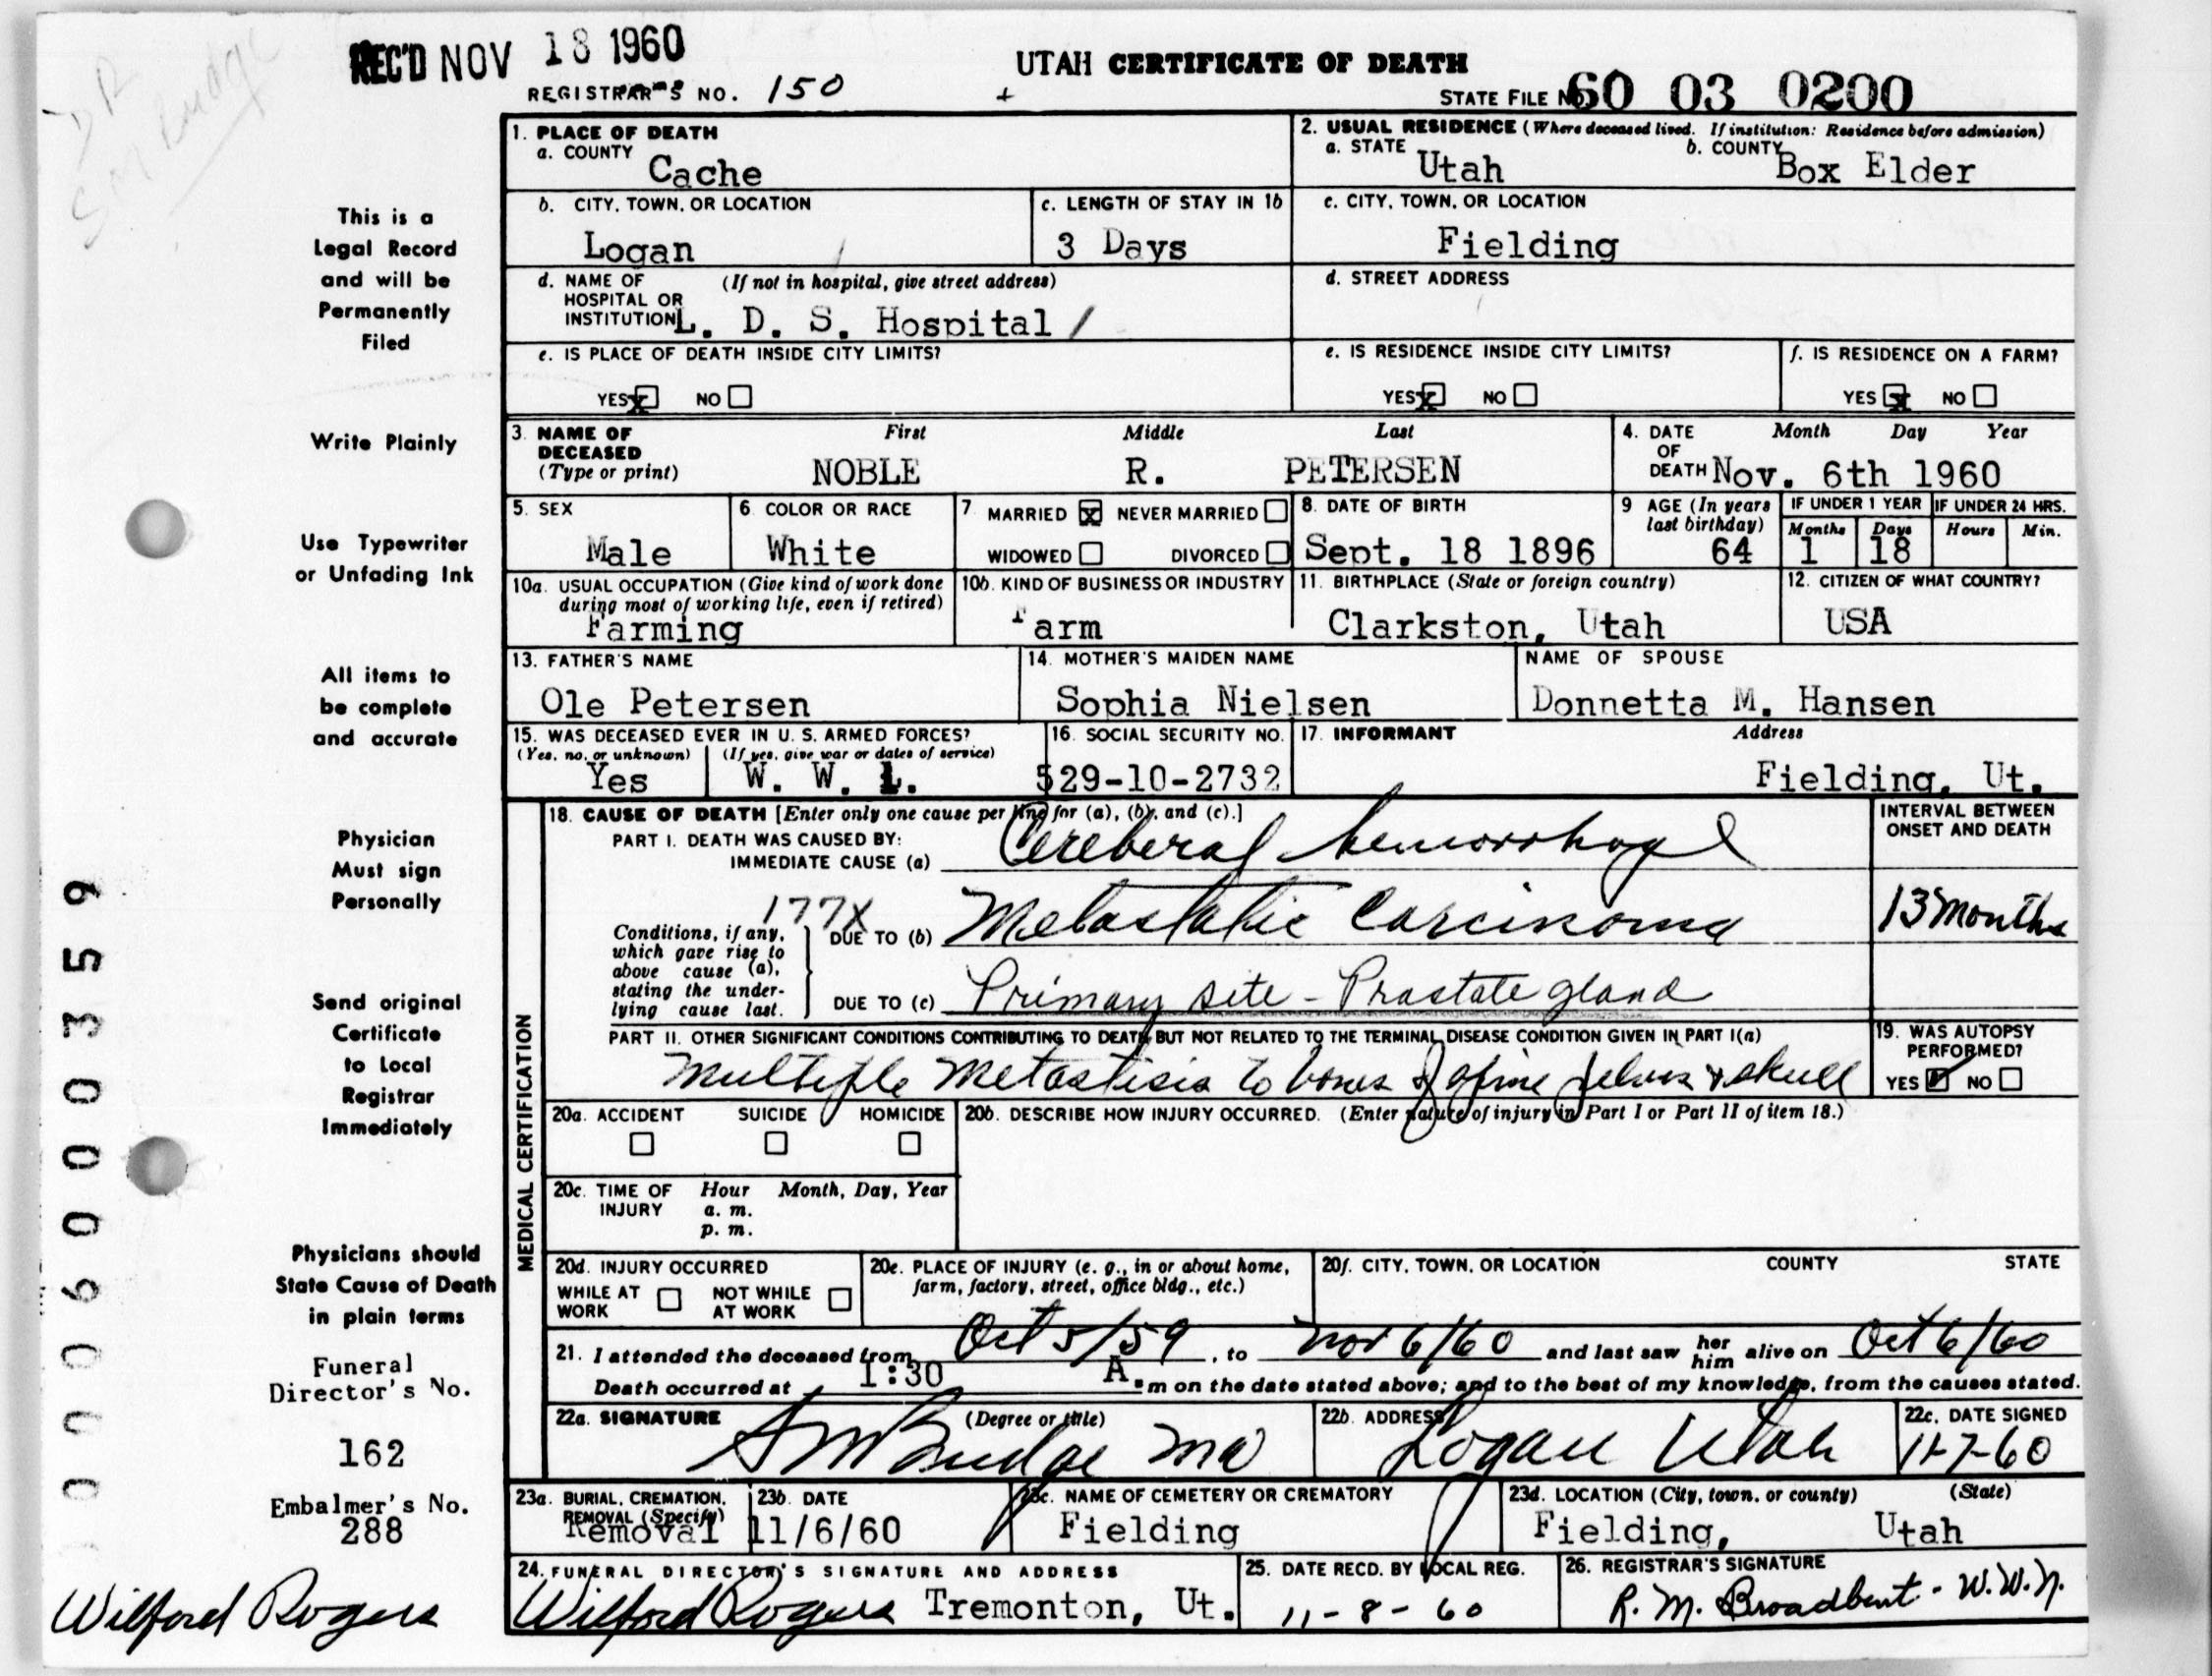 REC'D NOV 18 1960
UTAH CERTIFICATE OF DEATH
REGISTRAR'S NO. 150
STATE FILE NO. 60 03 0200
DR
S M Budge
This is a
Legal Record
and will be
Permanently
Filed
Write Plainly
Use Typewriter
or Unfading Ink
All items to
be complete
and accurate
Physician
Must sign
Personally
Send original
Certificate
to Local
Registrar
Immediately
Physicians should
State Cause of Death
in plain terms
Funeral
Director's No.
162
Embalmer's No.
288
Wilford Rogers
00006000359
1. PLACE OF DEATH
a. COUNTY
Cache
2. USUAL RESIDENCE (Where deceased lived. If institution: Residence before admission)
a. STATE Utah b. COUNTY Box Elder
b. CITY, TOWN, OR LOCATION
Logan
c. LENGTH OF STAY IN 1b
3 Days
c. CITY, TOWN, OR LOCATION
Fielding
d. NAME OF (If not in hospital, give street address)
HOSPITAL OR
INSTITUTION L. D. S. Hospital /
d. STREET ADDRESS
e. IS PLACE OF DEATH INSIDE CITY LIMITS?
YES x NO
e. IS RESIDENCE INSIDE CITY LIMITS?
YES x NO
f. IS RESIDENCE ON A FARM?
YES x NO
3. NAME OF DECEASED (Type or print)
First Middle Last
NOBLE R. PETERSEN
4. DATE OF DEATH Month Day Year
Nov. 6th 1960
5. SEX
Male
6. COLOR OR RACE
White
7. MARRIED x NEVER MARRIED
WIDOWED DIVORCED
8. DATE OF BIRTH
Sept. 18 1896
9 AGE (In years last birthday)
64
IF UNDER 1 YEAR IF UNDER 24 HRS.
Months Days Hours Min.
1 18
10a. USUAL OCCUPATION (Give kind of work done
during most of working life, even if retired)
Farming
10b. KIND OF BUSINESS OR INDUSTRY
Farm
11. BIRTHPLACE (State or foreign country)
Clarkston, Utah
12. CITIZEN OF WHAT COUNTRY?
USA
13. FATHER'S NAME
Ole Petersen
14. MOTHER'S MAIDEN NAME
Sophia Nielsen
NAME OF SPOUSE
Donnetta M. Hansen
15. WAS DECEASED EVER IN U. S. ARMED FORCES?
(Yes, no, or unknown) (If yes, give war or dates of service)
Yes W. W. 1.
16. SOCIAL SECURITY NO.
529-10-2732
17. INFORMANT Address
Fielding, Ut.
MEDICAL CERTIFICATION
18. CAUSE OF DEATH [Enter only one cause per line for (a), (b), and (c).]
PART I. DEATH WAS CAUSED BY:
IMMEDIATE CAUSE (a) Cereberal hemorrhage
INTERVAL BETWEEN
ONSET AND DEATH
177X
Conditions, if any,
which gave rise to
above cause (a),
stating the under-
lying cause last.
DUE TO (b) Metastatic Carcinoma
13 months
DUE TO (c) Primary site - Prastate gland
PART II. OTHER SIGNIFICANT CONDITIONS CONTRIBUTING TO DEATH BUT NOT RELATED TO THE TERMINAL DISEASE CONDITION GIVEN IN PART I(a)
Multiple Metastisis to bones of spine pelvis & skull
19. WAS AUTOPSY
PERFORMED?
YES NO
20a. ACCIDENT SUICIDE HOMICIDE
20b. DESCRIBE HOW INJURY OCCURRED. (Enter nature of injury in Part I or Part II of item 18.)
20c. TIME OF INJURY Hour Month, Day, Year
a. m.
p. m.
20d. INJURY OCCURRED
WHILE AT WORK NOT WHILE AT WORK
20e. PLACE OF INJURY (e. g., in or about home,
farm, factory, street, office bldg., etc.)
20f. CITY, TOWN, OR LOCATION COUNTY STATE
21. I attended the deceased from Oct 5/59, to Nov 6/60 and last saw her him alive on Oct 6/60
Death occurred at 1:30 A.m on the date stated above; and to the best of my knowledge, from the causes stated.
22a. SIGNATURE (Degree or title)
S M Budge MD
22b. ADDRESS
Logan Utah
22c. DATE SIGNED
11-7-60
23a. BURIAL, CREMATION,
REMOVAL (Specify)
Removal
23b. DATE
11/6/60
23c. NAME OF CEMETERY OR CREMATORY
Fielding
23d. LOCATION (City, town, or county) (State)
Fielding, Utah
24. FUNERAL DIRECTOR'S SIGNATURE AND ADDRESS
Wilford Rogers Tremonton, Ut.
25. DATE RECD. BY LOCAL REG.
11-8-60
26. REGISTRAR'S SIGNATURE
R. M. Broadbent - W.W.N.